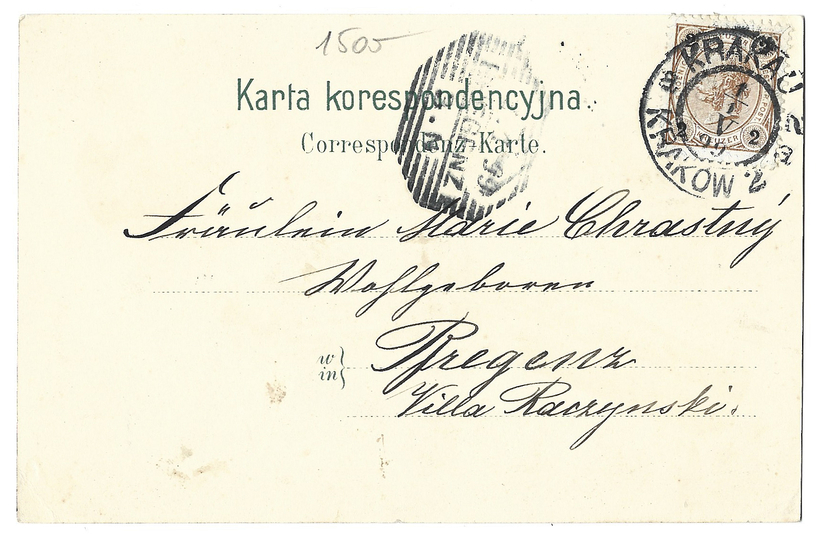 1505
Karta korespondencyjna.
Correspondenz-Karte.
KRAKAU 2
1
V
99
KRAKÓW 2
2 KREUZER 2
BREGENZ
99
Fräulein Marie Chrastný
Wohlgeboren
w
in
Bregenz
Villa Raczynski.